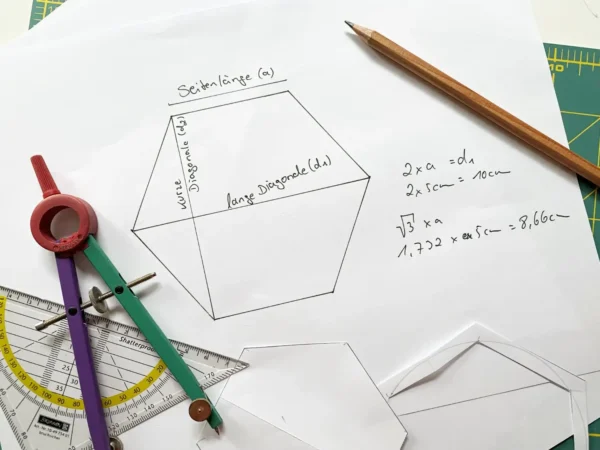 Seitenlänge (a)
kurze
Diagonale (d2)
lange Diagonale (d1)
2 x a = d1
2 x 5cm = 10cm
√3 x a
1,732 x 5cm = 8,66cm
Shatterproof